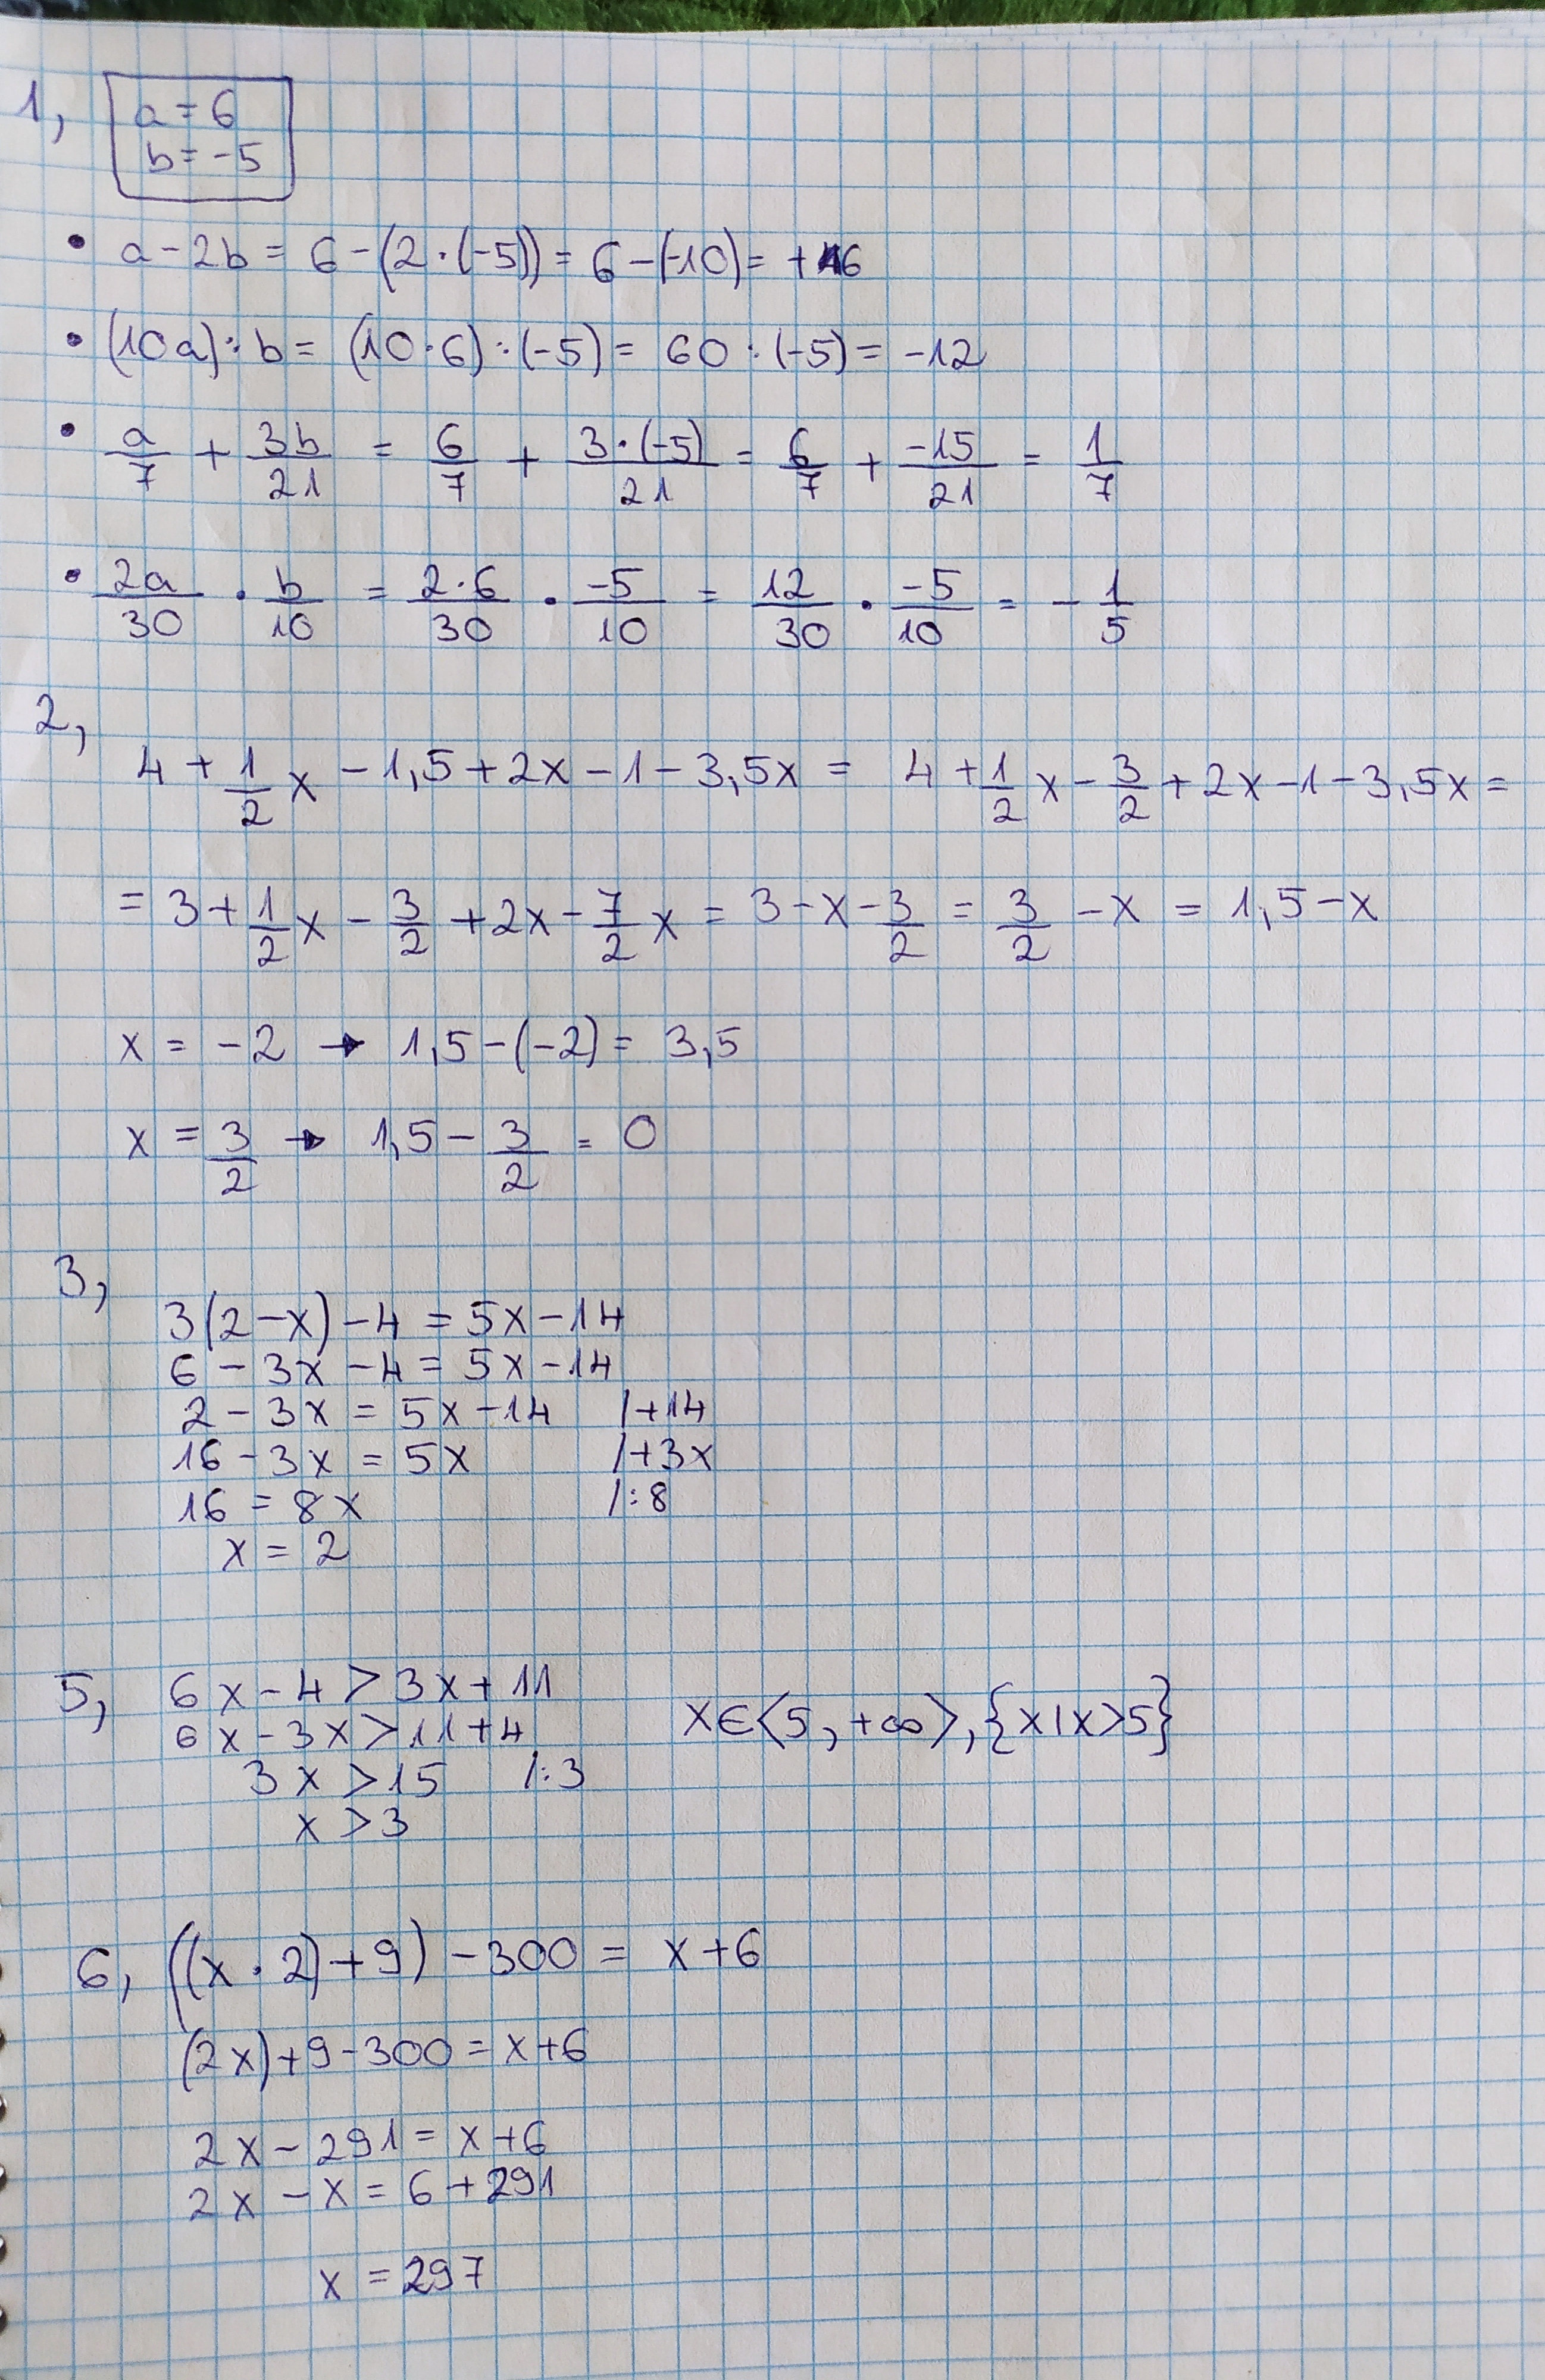 1, a = 6
b = -5
• a - 2b = 6 - (2·(-5)) = 6 - (-10) = +16
• (10a) : b = (10·6) : (-5) = 60 : (-5) = -12
• a/7 + 3b/21 = 6/7 + 3·(-5)/21 = 6/7 + -15/21 = 1/7
• 2a/30 · b/10 = 2·6/30 · -5/10 = 12/30 · -5/10 = - 1/5
2,
4 + 1/2 x - 1,5 + 2x - 1 - 3,5x = 4 + 1/2 x - 3/2 + 2x - 1 - 3,5x =
= 3 + 1/2 x - 3/2 + 2x - 7/2 x = 3 - x - 3/2 = 3/2 - x = 1,5 - x
x = -2 → 1,5 - (-2) = 3,5
x = 3/2 → 1,5 - 3/2 = 0
3,
3(2 - x) - 4 = 5x - 14
6 - 3x - 4 = 5x - 14
2 - 3x = 5x - 14 /+14
16 - 3x = 5x /+3x
16 = 8x /:8
x = 2
5, 6x - 4 > 3x + 11
6x - 3x > 11 + 4 x∈⟨5, +∞⟩, {x|x>5}
3x > 15 /:3
x > 3
6, ((x · 2) + 9) - 300 = x + 6
(2x) + 9 - 300 = x + 6
2x - 291 = x + 6
2x - x = 6 + 291
x = 297